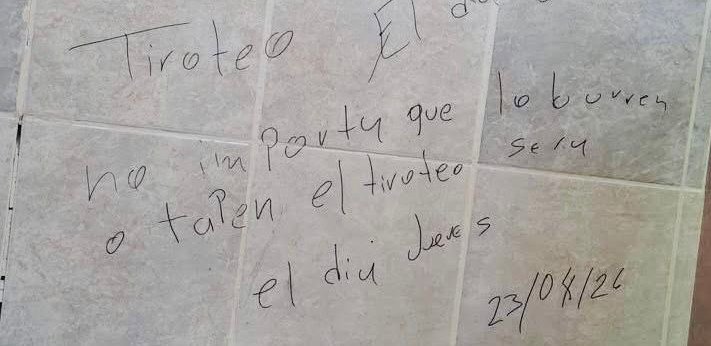 Tiroteo El
no importa que lo borren
o tapen el tiroteo sera
el dia Jueves
23/04/26